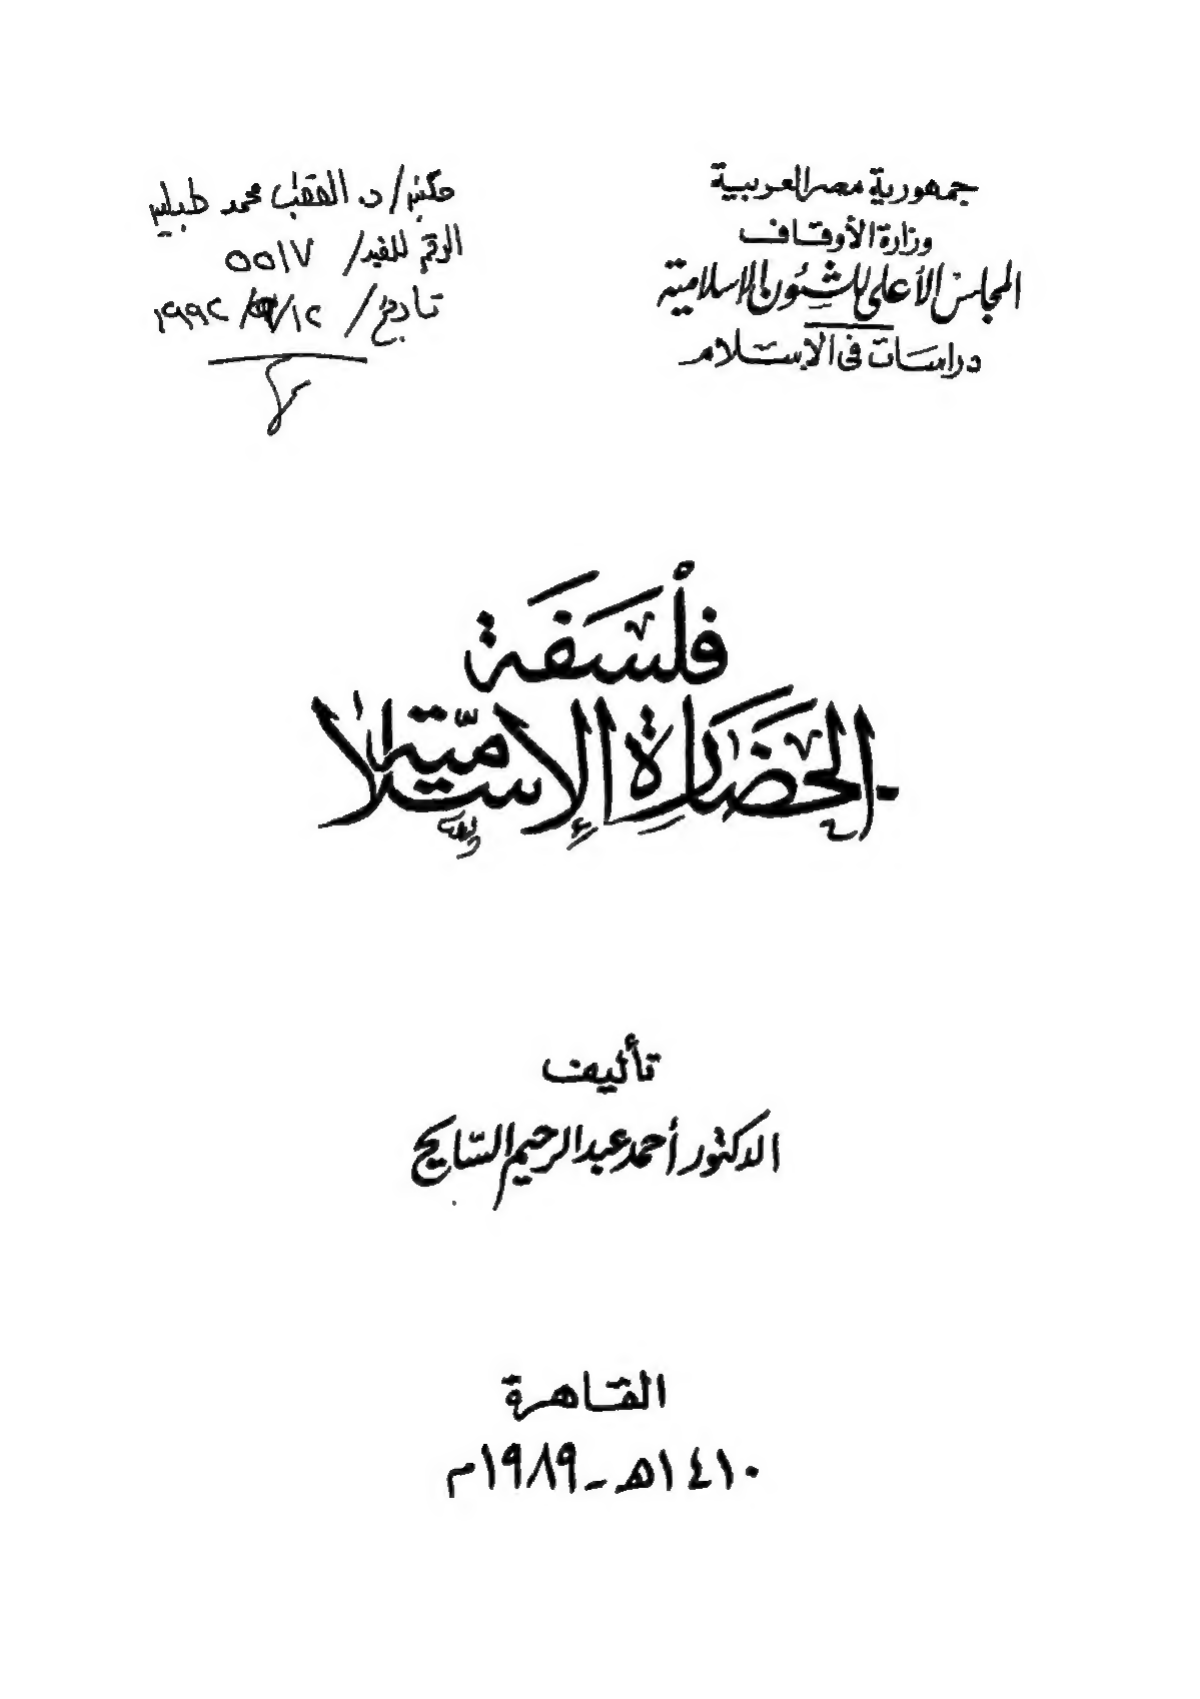 جمهورية مصر العربية
وزارة الأوقاف
المجلس الأعلى للشئون الإسلامية
دراسات في الإسلام
مكتبة/ د. القطب محمد طبلية
الرقم للقيد/ ٥٥١٧
تاريخ/ ١٢/ /١٩٩٢
فلسفة
الحضارة الإسلامية
تأليف
الدكتور أحمد عبد الرحيم السايح
القاهرة
١٤١٠هـ - ١٩٨٩م